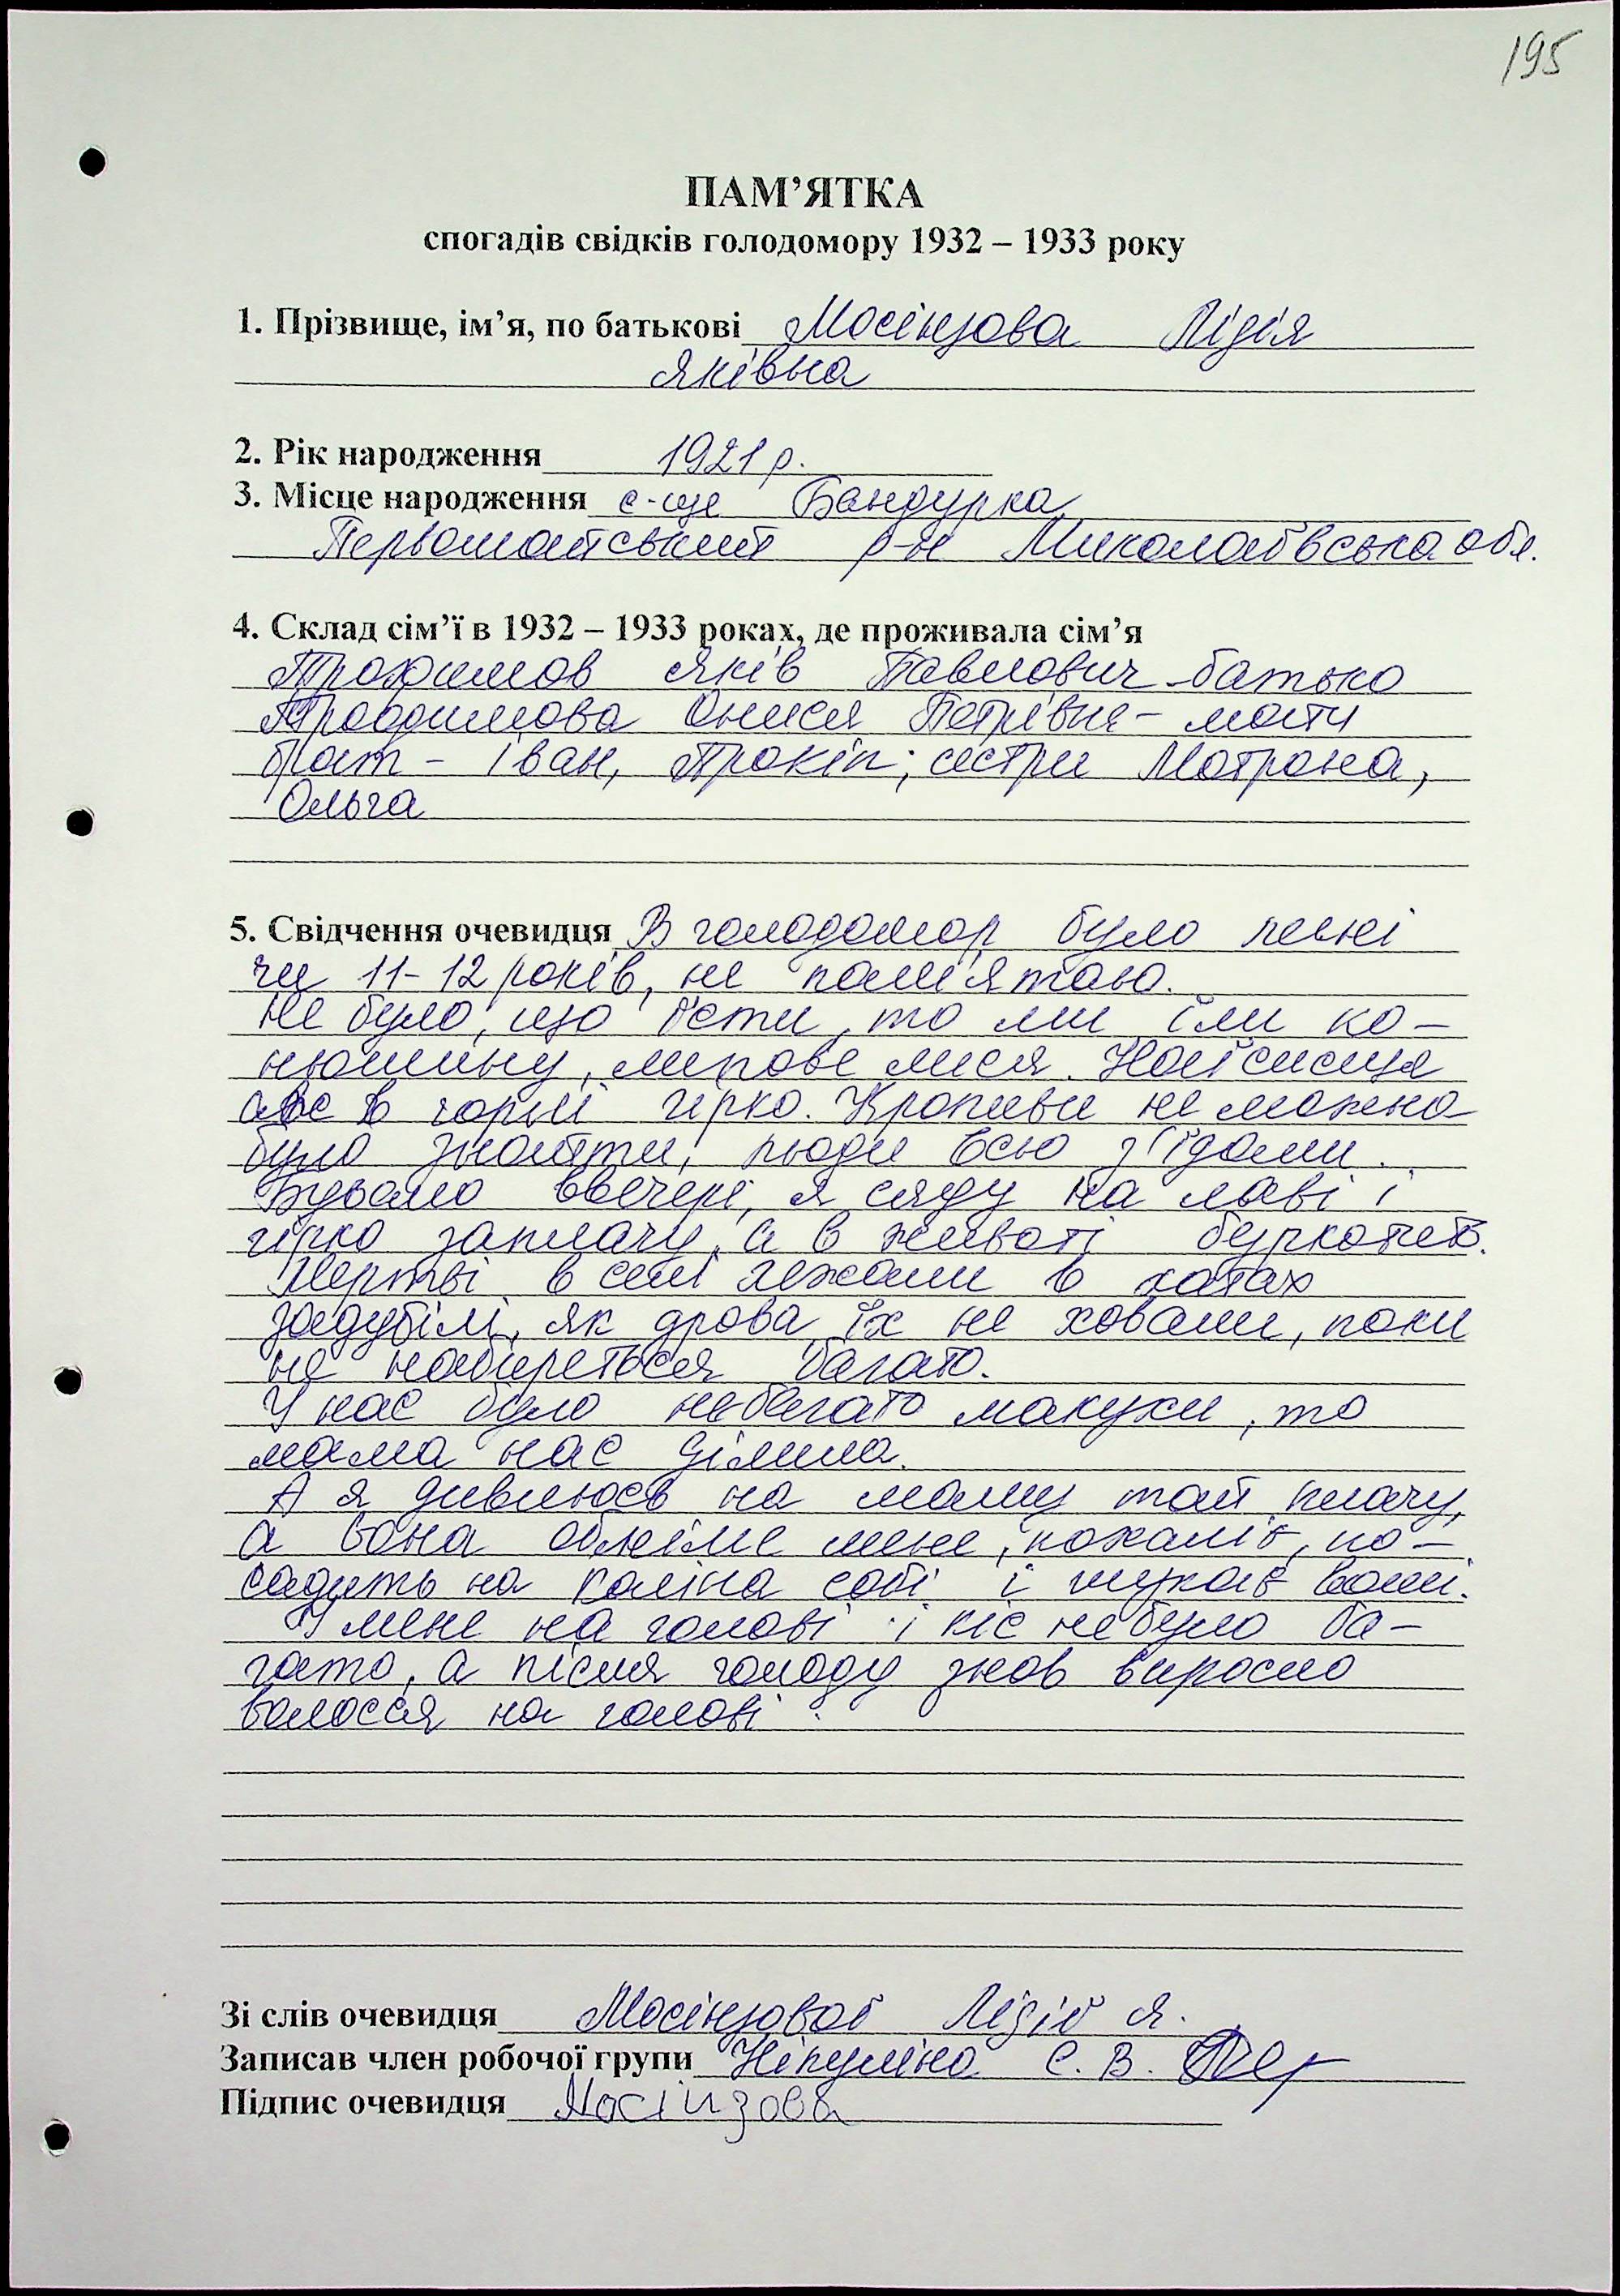 195
ПАМ’ЯТКА
спогадів свідків голодомору 1932 – 1933 року
1. Прізвище, ім’я, по батькові Мосінзова Лідія
Яківна
2. Рік народження 1921 р.
3. Місце народження с-ще Бандурка
Первомайський р-н Миколаївська обл.
4. Склад сім’ї в 1932 – 1933 роках, де проживала сім’я
Трохимов Яків Павлович - батько
Трофимова Онися Петрівна - мати
брат - Іван, Прокіп; сестри Мотрона,
Ольга
5. Свідчення очевидця В голодомор було мені
чи 11-12 років, не пам'ятаю.
Не було, що їсти, то ми їли ко-
нюшину, липове лися. Наїсися
аж в горлі гірко. Кропиви не можна
було знайти, люди всю з'їдали.
Бувало ввечері, я сяду на лаві і
гірко заплачу, а в животі буркотить.
Мертві в селі лежали в хатах
задубілі, як дрова, їх не ховали, поки
не набиреться багато.
У нас було небагато макухи, то
мама нас ділила.
А я дивлюсь на маму тай плачу,
а вона обніме мене, пожаліє, по-
садить на коліна собі і шукає воші.
У мене на голові і кіс не було ба-
гато, а після голоду знов виросло
волосся на голові.
Зі слів очевидця Мосінзової Лідії Я.
Записав член робочої групи Нікуліна С. В.
Підпис очевидця Мосінзова